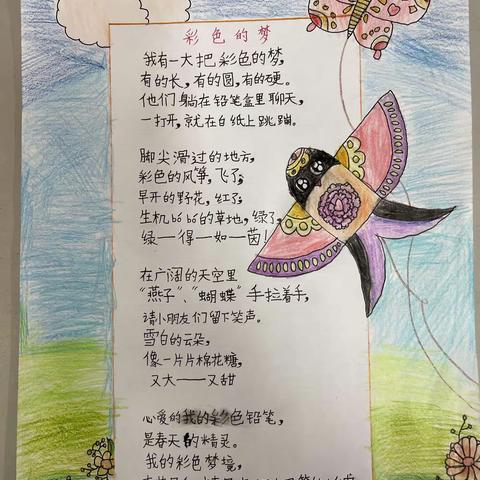 彩色的梦
我有一大把彩色的梦,
有的长,有的圆,有的硬。
他们躺在铅笔盒里聊天,
一打开,就在白纸上跳蹦。
脚尖滑过的地方,
彩色的风筝,飞了;
早开的野花,红了;
生机bó bó的草地,绿了,
绿——得—如—茵!
在广阔的天空里
“燕子”、“蝴蝶”手拉着手,
请小朋友们留下笑声。
雪白的云朵,
像一片片棉花糖,
又大——又甜
心爱的我的彩色铅笔,
是春天的精灵。
我的彩色梦境,